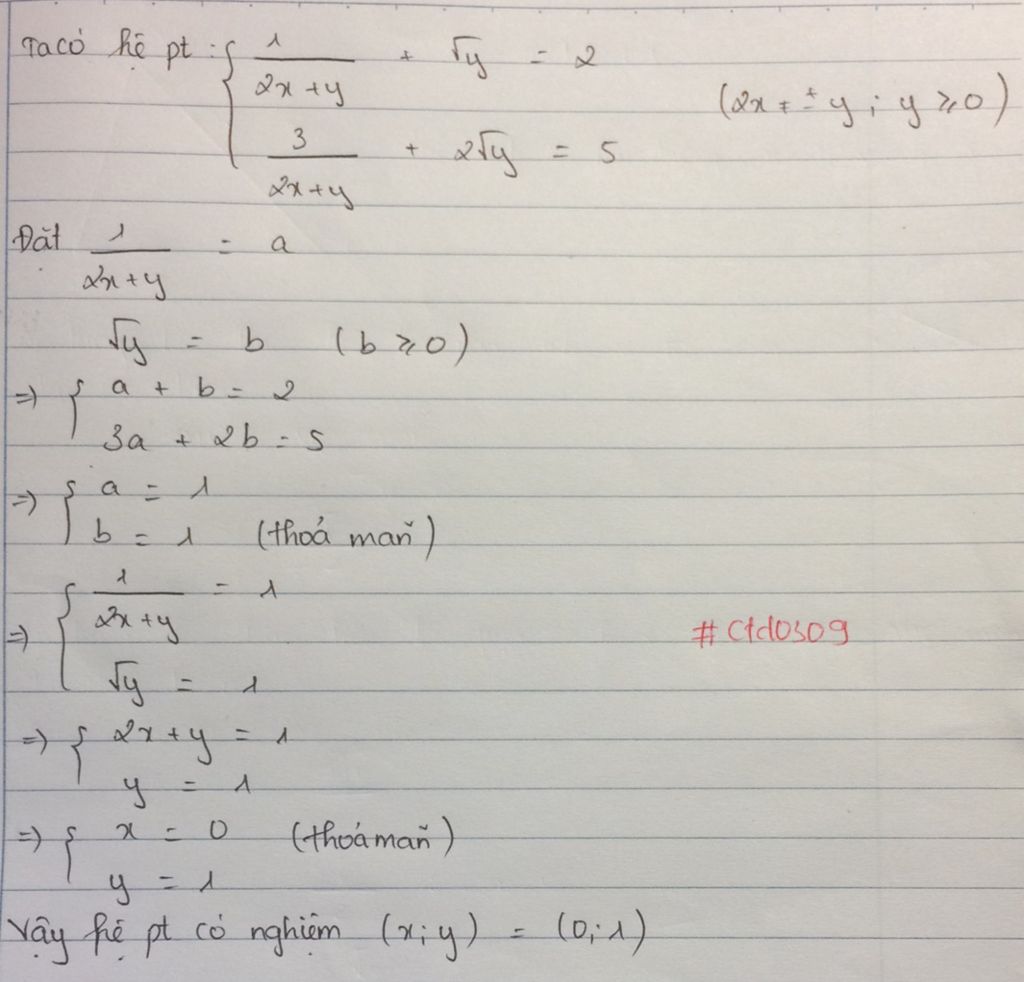 Ta có hệ pt : { 1/(2x+y) + √y = 2
(2x ≠ ± y ; y ⩾ 0)
3/(2x+y) + 2√y = 5
Đặt 1/(2x+y) = a
√y = b ( b ⩾ 0 )
=> { a + b = 2
3a + 2b = 5
=> { a = 1
b = 1 (thoả mãn)
=> { 1/(2x+y) = 1
#Ctd0309
√y = 1
=> { 2x + y = 1
y = 1
=> { x = 0 (thoả mãn)
y = 1
Vậy hệ pt có nghiệm (x; y) = (0; 1)